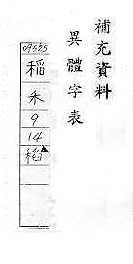 補充資料
異體字表
09525
稻
禾
9
14